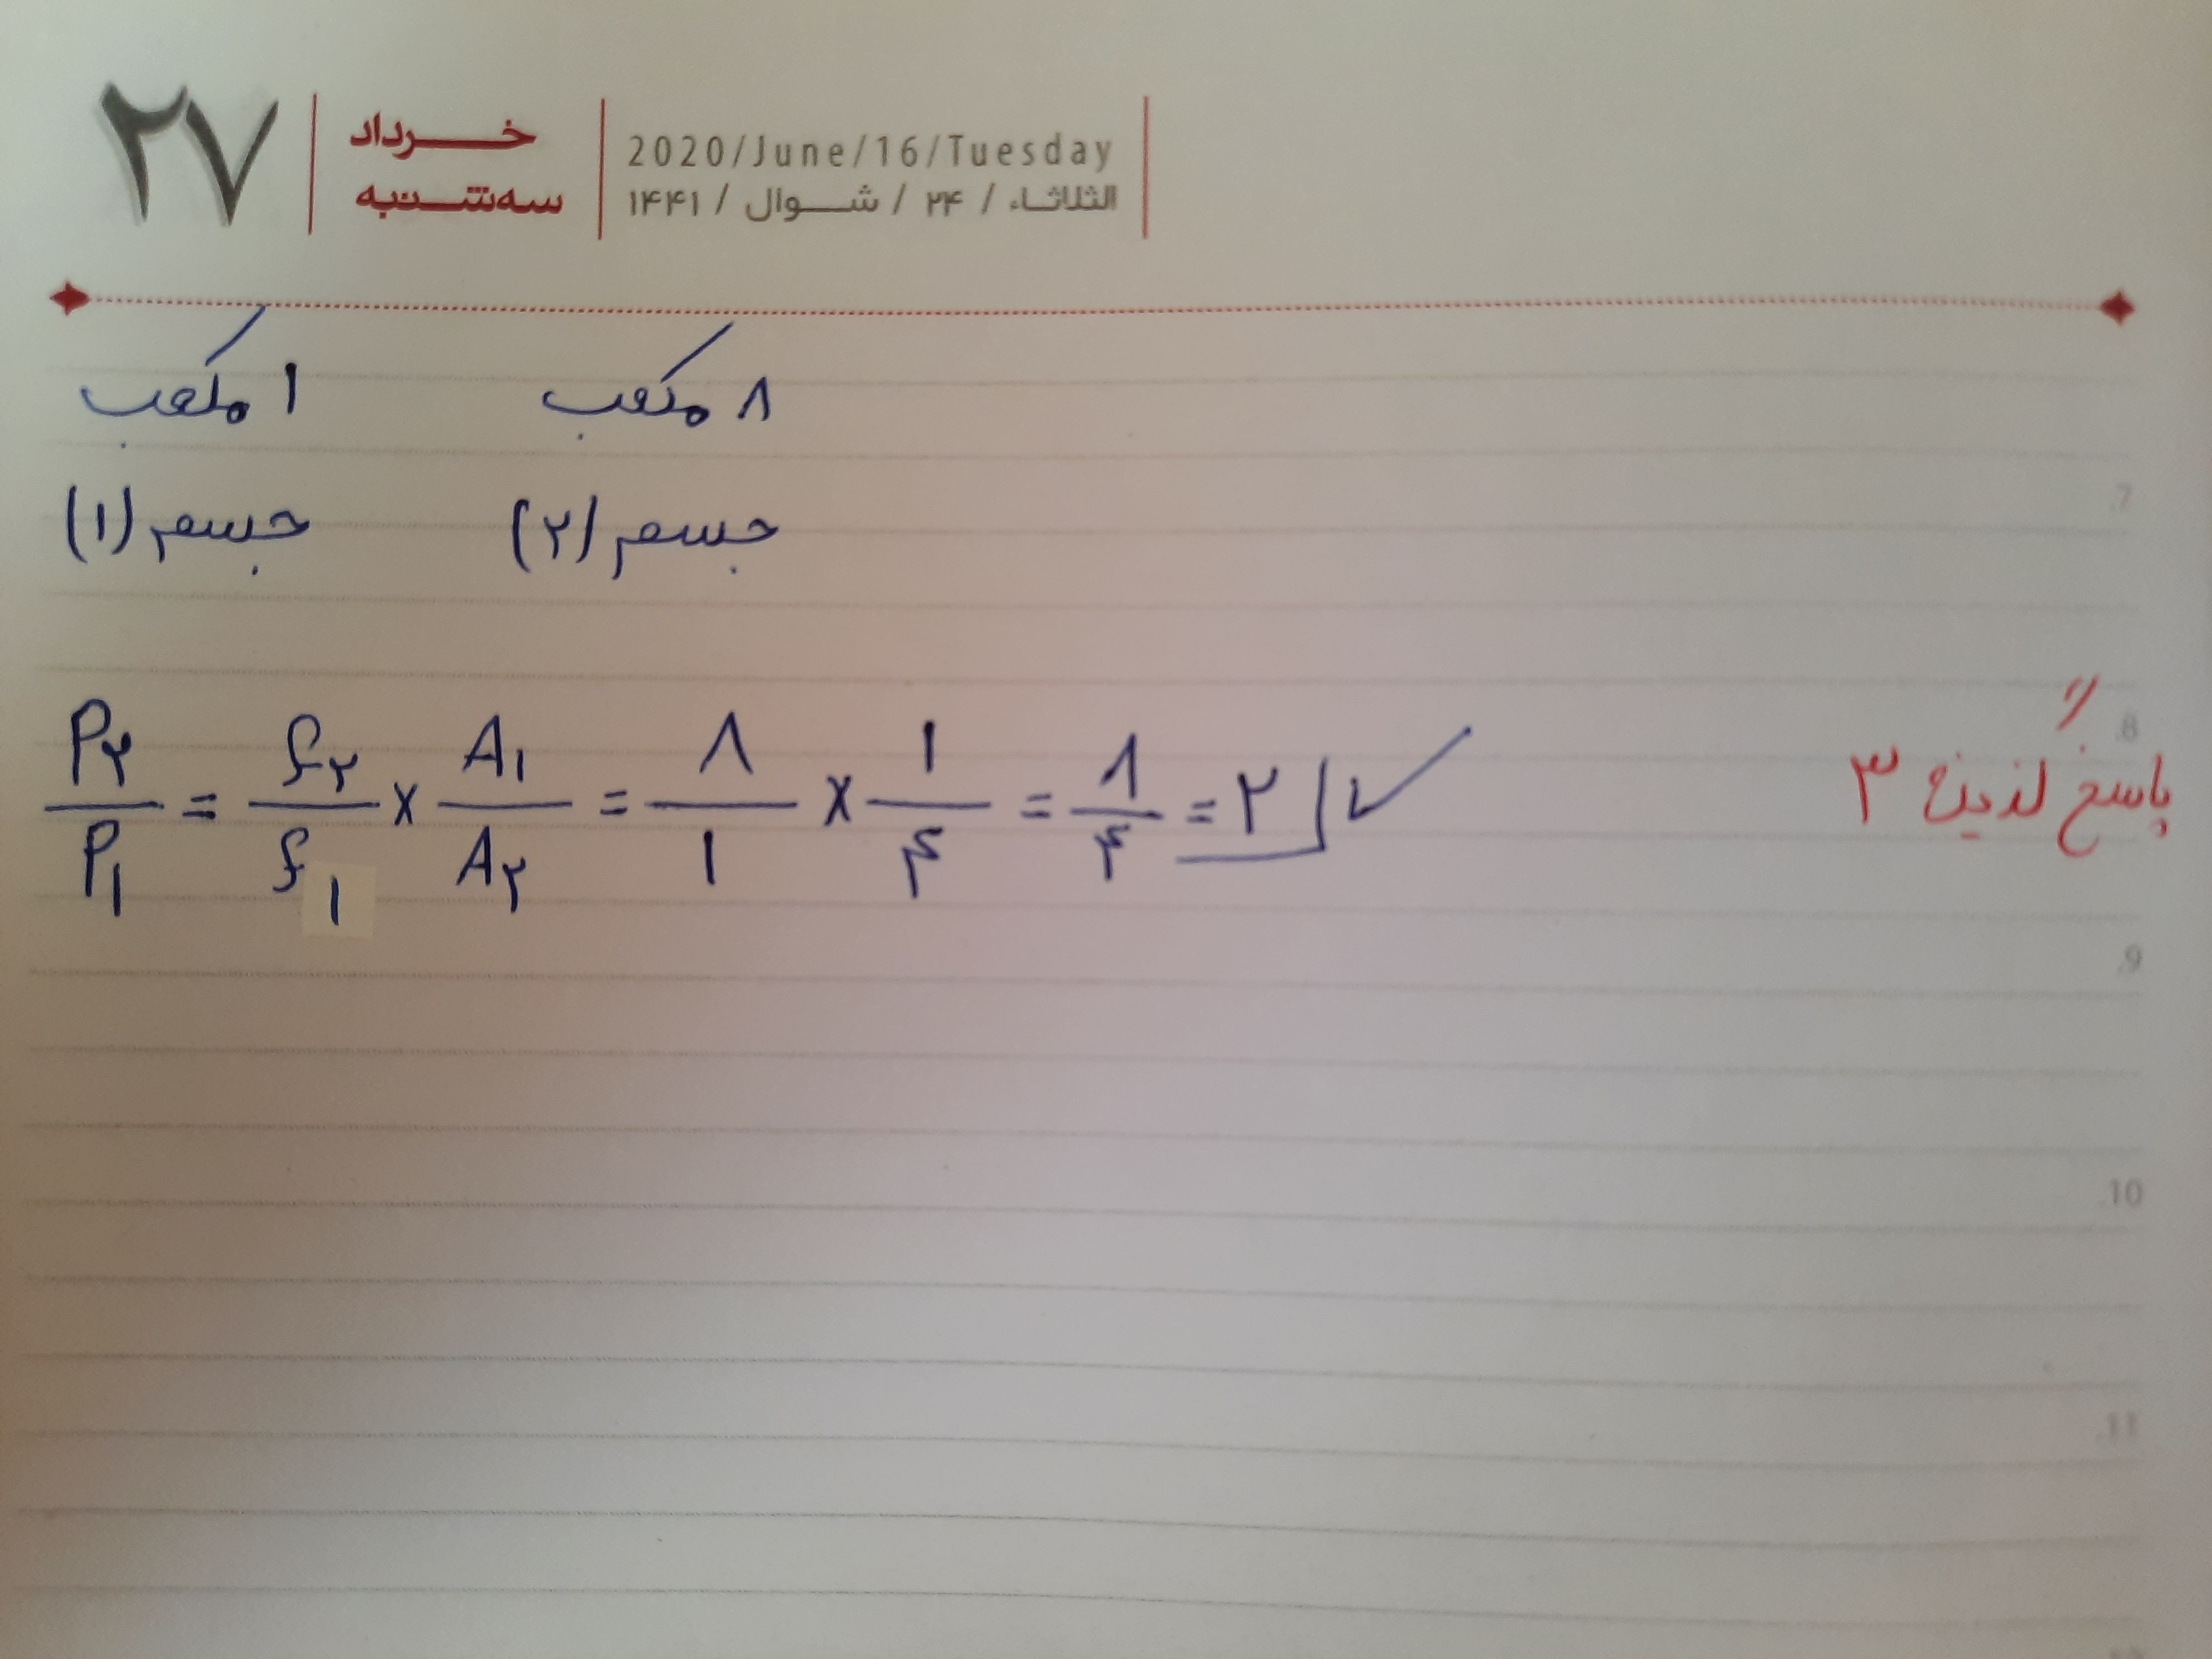 ۲۷
خرداد
سه‌شنبه
2020/June/16/Tuesday
الثلاثاء / ۲۴ / شوال / ۱۴۴۱
۱ مکعب
۸ مکعب
جسم (۱)
جسم (۲)
7.
P۲/P۱ = f۲/f۱ × A۱/A۲ = ۸/۱ × ۱/۴ = ۸/۴ = ۲ ✓
پاسخ گزینه ۳
8.
9.
10.
11.